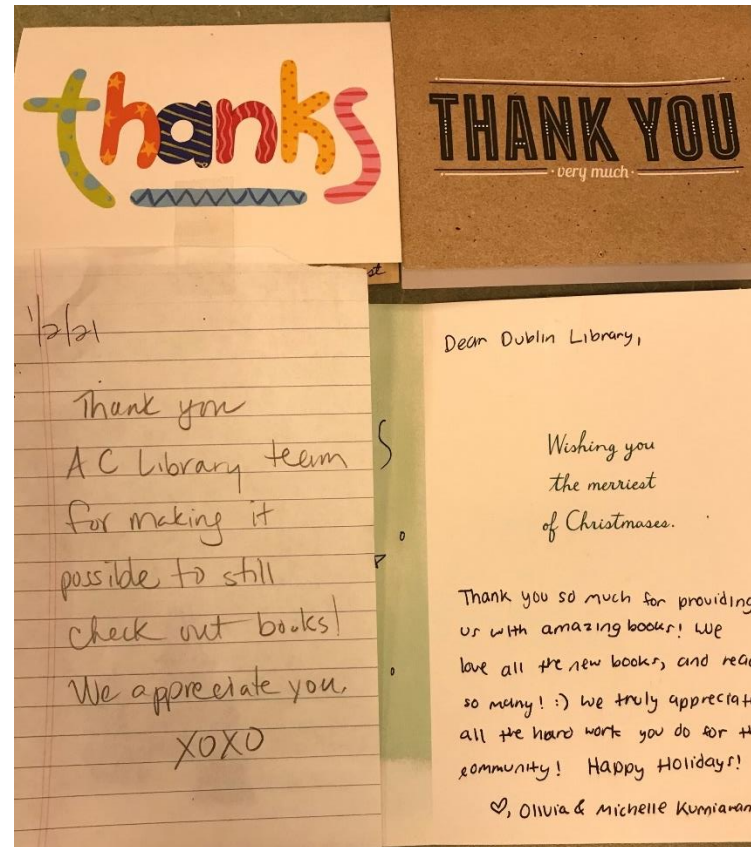 thanks
THANK YOU
very much
st
1/2/21
Thank you
A C Library team
for making it
possible to still
check out books!
We appreciate you.
XOXO
Dear Dublin Library,
Wishing you
the merriest
of Christmases.
Thank you so much for providing
us with amazing books! We
love all the new books, and read
so many! :) We truly appreciate
all the hard work you do for the
community! Happy Holidays!
♡, Olivia & Michelle